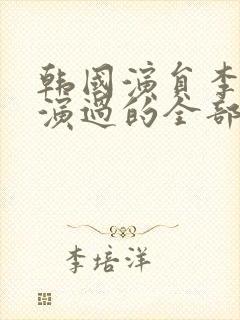 韩国演员李
演过的全部
李培洋